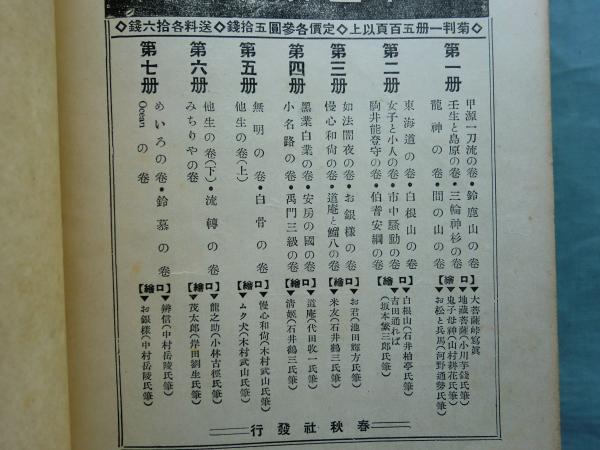 ◇菊判一册五百頁以上◇定價各參圓五拾錢◇送料各拾六錢◇
第一册
甲源一刀流の卷・鈴鹿山の卷
壬生と島原の卷・三輪神杉の卷
龍神の卷・間の山の卷
【口繪】
▼大菩薩峠寫眞
地藏菩薩(小川芋錢氏筆)
鬼子母神(山村耕花氏筆)
▼お松と兵馬(河野通勢氏筆)
第二册
東海道の卷・白根山の卷
女子と小人の卷・市中騷動の卷
駒井能登守の卷・伯耆安綱の卷
【口繪】
▼白根山(石井柏亭氏筆)
吉田通れば
(坂本繁三郎氏筆)
第三册
如法闇夜の卷・お銀樣の卷
慢心和尙の卷・道庵と鰡八の卷
【口繪】
▼お君(池田輝方氏筆)
▼米友(石井鶴三氏筆)
第四册
黑業白業の卷・安房の國の卷
小名路の卷・禹門三級の卷
【口繪】
▼道庵(代田收一氏筆)
▼淸姬(石井鶴三氏筆)
第五册
無明の卷・白骨の卷
他生の卷(上)
【口繪】
▼慢心和尙(木村武山氏筆)
▼ムク犬(木村武山氏筆)
第六册
他生の卷(下)・流轉の卷
みちりやの卷
【口繪】
▼龍之助(小林古徑氏筆)
▼茂太郎(岸田劉生氏筆)
第七册
めいろの卷・鈴慕の卷
Oceanの卷
【口繪】
▼辨信(中村岳陵氏筆)
▼お銀樣(中村岳陵氏筆)
春秋社發行